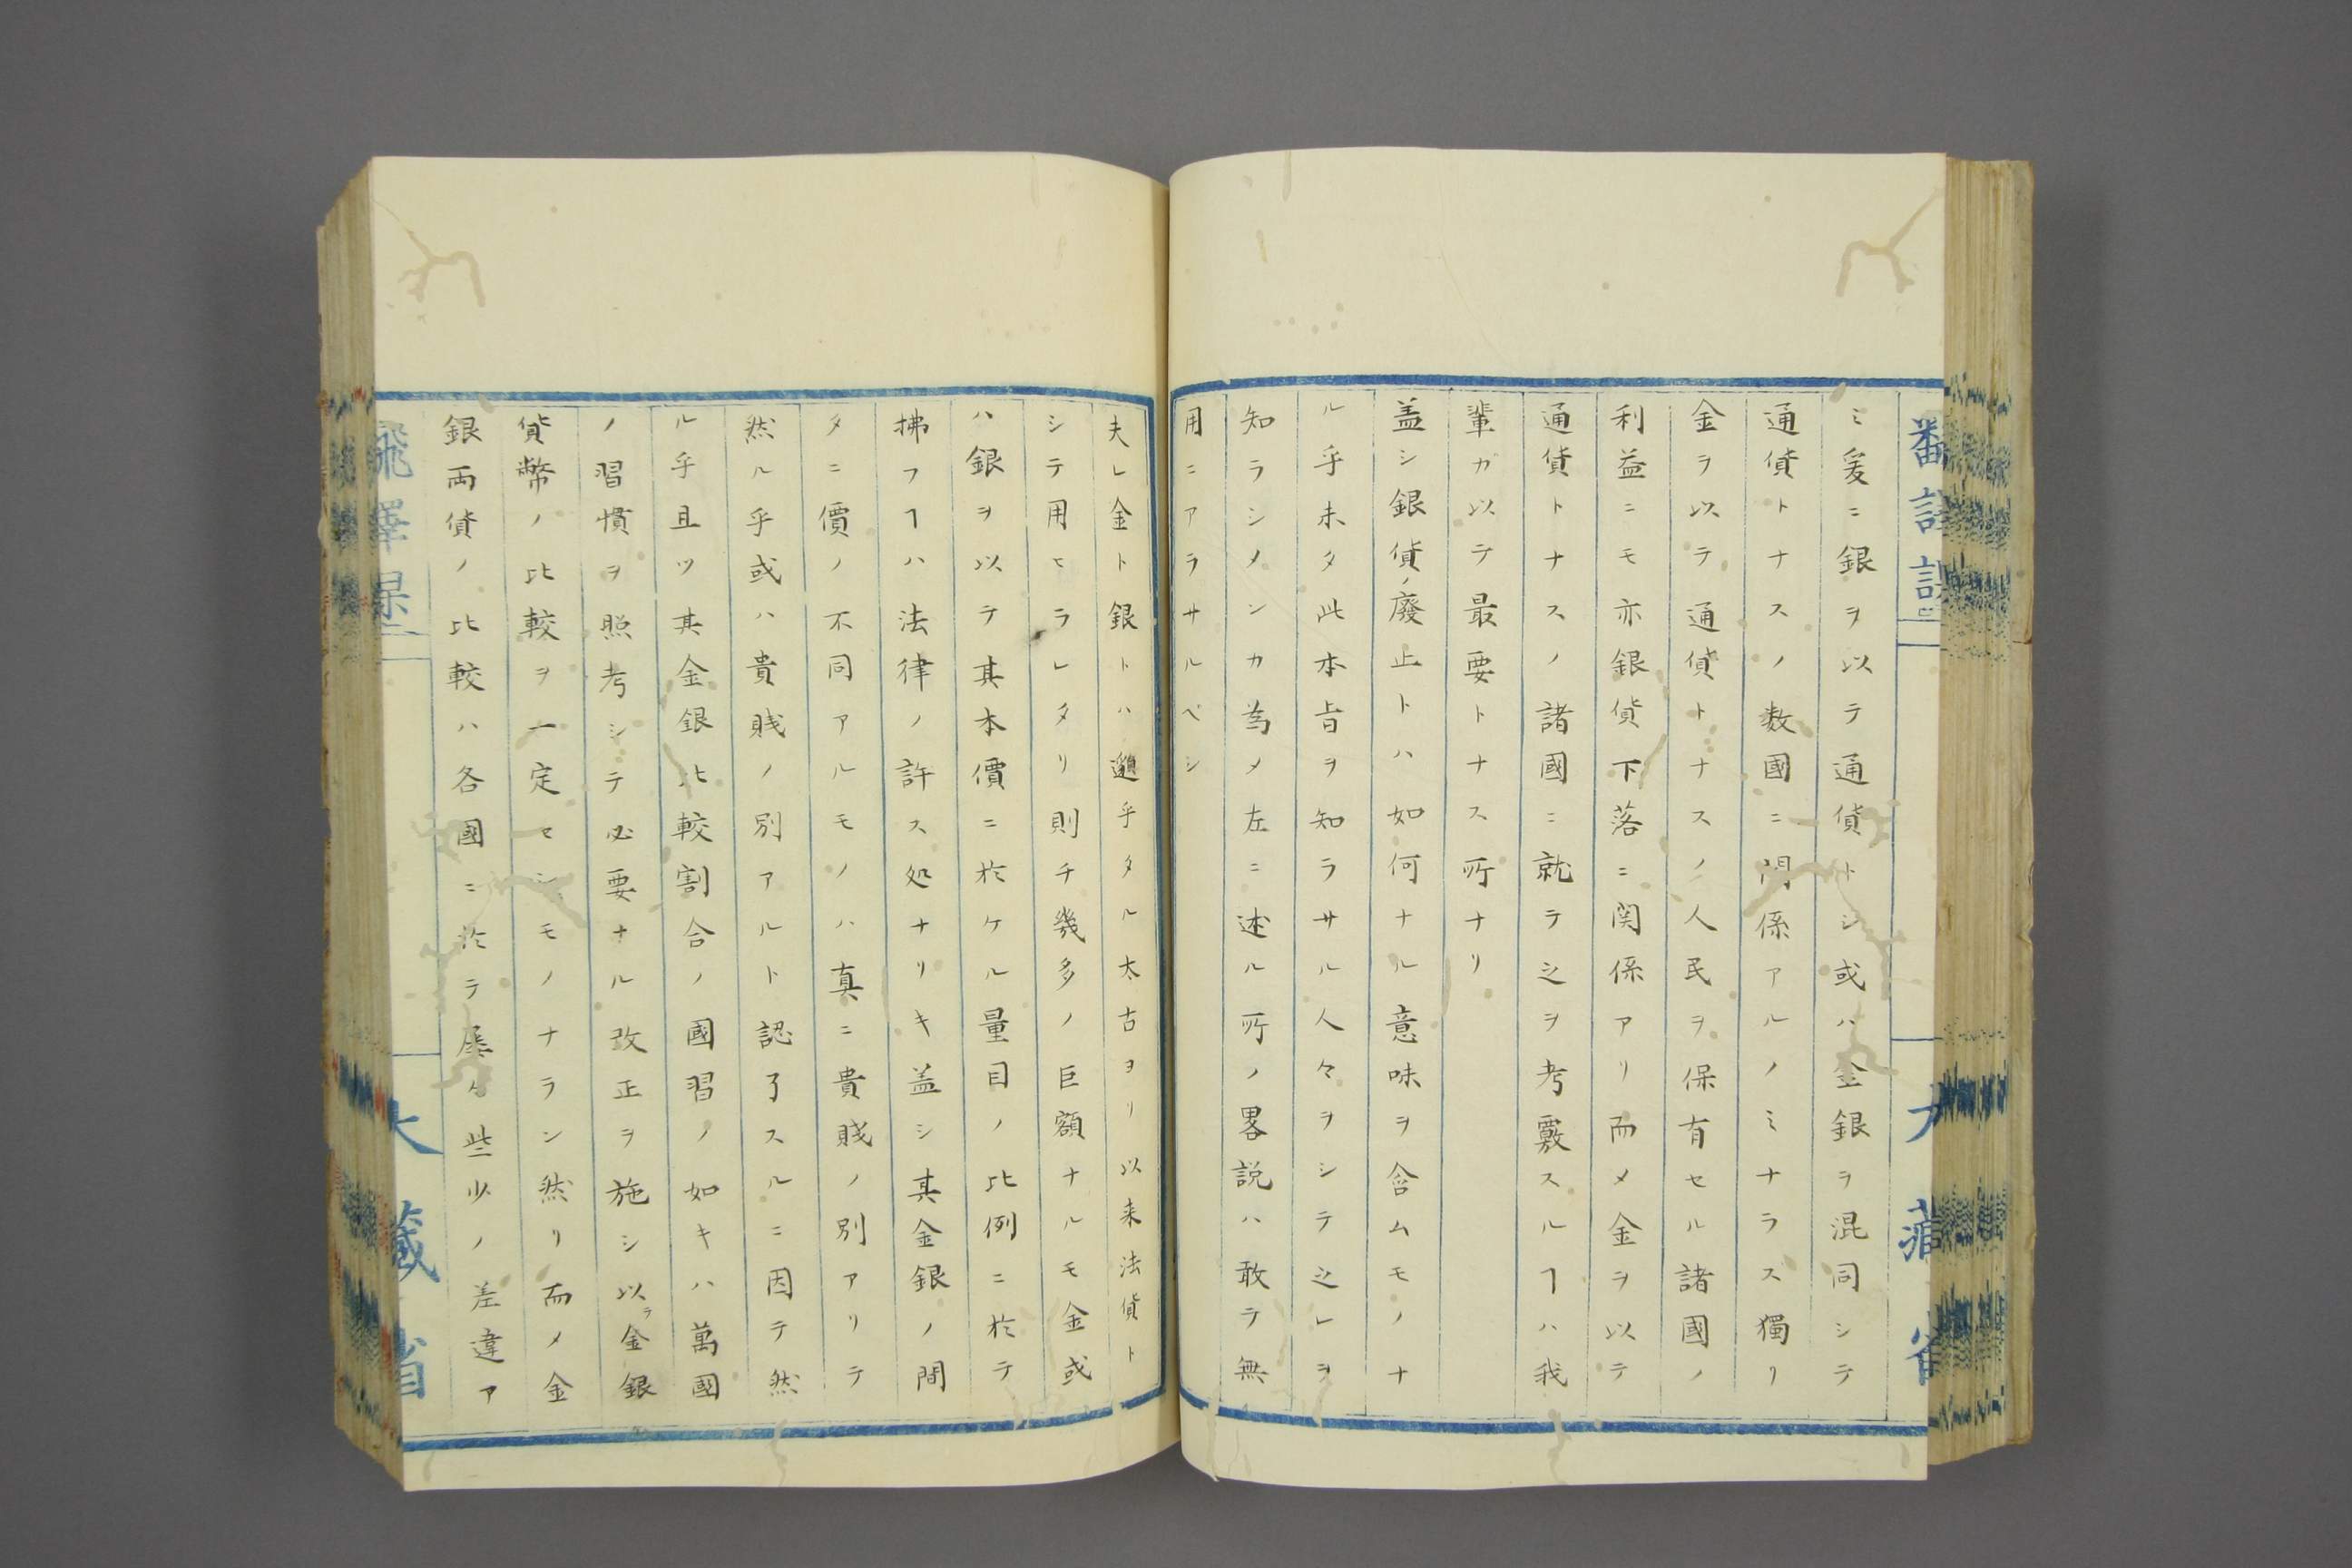 ミ爰ニ銀ヲ以テ通貨トシ或ハ金銀ヲ混同シテ
通貨トナスノ数國ニ関係アルノミナラス獨リ
金ヲ以テ通貨トナスノ人民ヲ保有セル諸國ノ
利益ニモ亦銀貨下落ニ関係アリ而メ金ヲ以テ
通貨トナスノ諸國ニ就テ之ヲ考覈スルヿハ我
輩ガ以テ最要トナス所ナリ
盖シ銀貨ノ廢止トハ如何ナル意味ヲ含ムモノナ
ル乎未タ此本旨ヲ知ラサル人々ヲシテ之レヲ
知ラシメンカ為メ左ニ述ル所ノ畧説ハ敢テ無
用ニアラサルベシ
夫レ金ト銀トハ邈乎タル太古ヨリ以来法貨ト
シテ用ヒラレタリ則チ幾多ノ巨額ナルモ金或
ハ銀ヲ以テ其本價ニ於ケル量目ノ比例ニ於テ
拂フヿハ法律ノ許ス処ナリキ盖シ其金銀ノ間
タニ價ノ不同アルモノハ真ニ貴賤ノ別アリテ
然ル乎或ハ貴賎ノ別アルト認了スルニ因テ然
ル乎且ツ其金銀比較割合ノ國習ノ如キハ萬國
ノ習慣ヲ照考シテ必要ナル改正ヲ施シ以テ金銀
貨幣ノ比較ヲ一定セシモノナラン然リ而メ金
銀両貨ノ比較ハ各國ニ於テ屡々些少ノ差違ア
大藏省